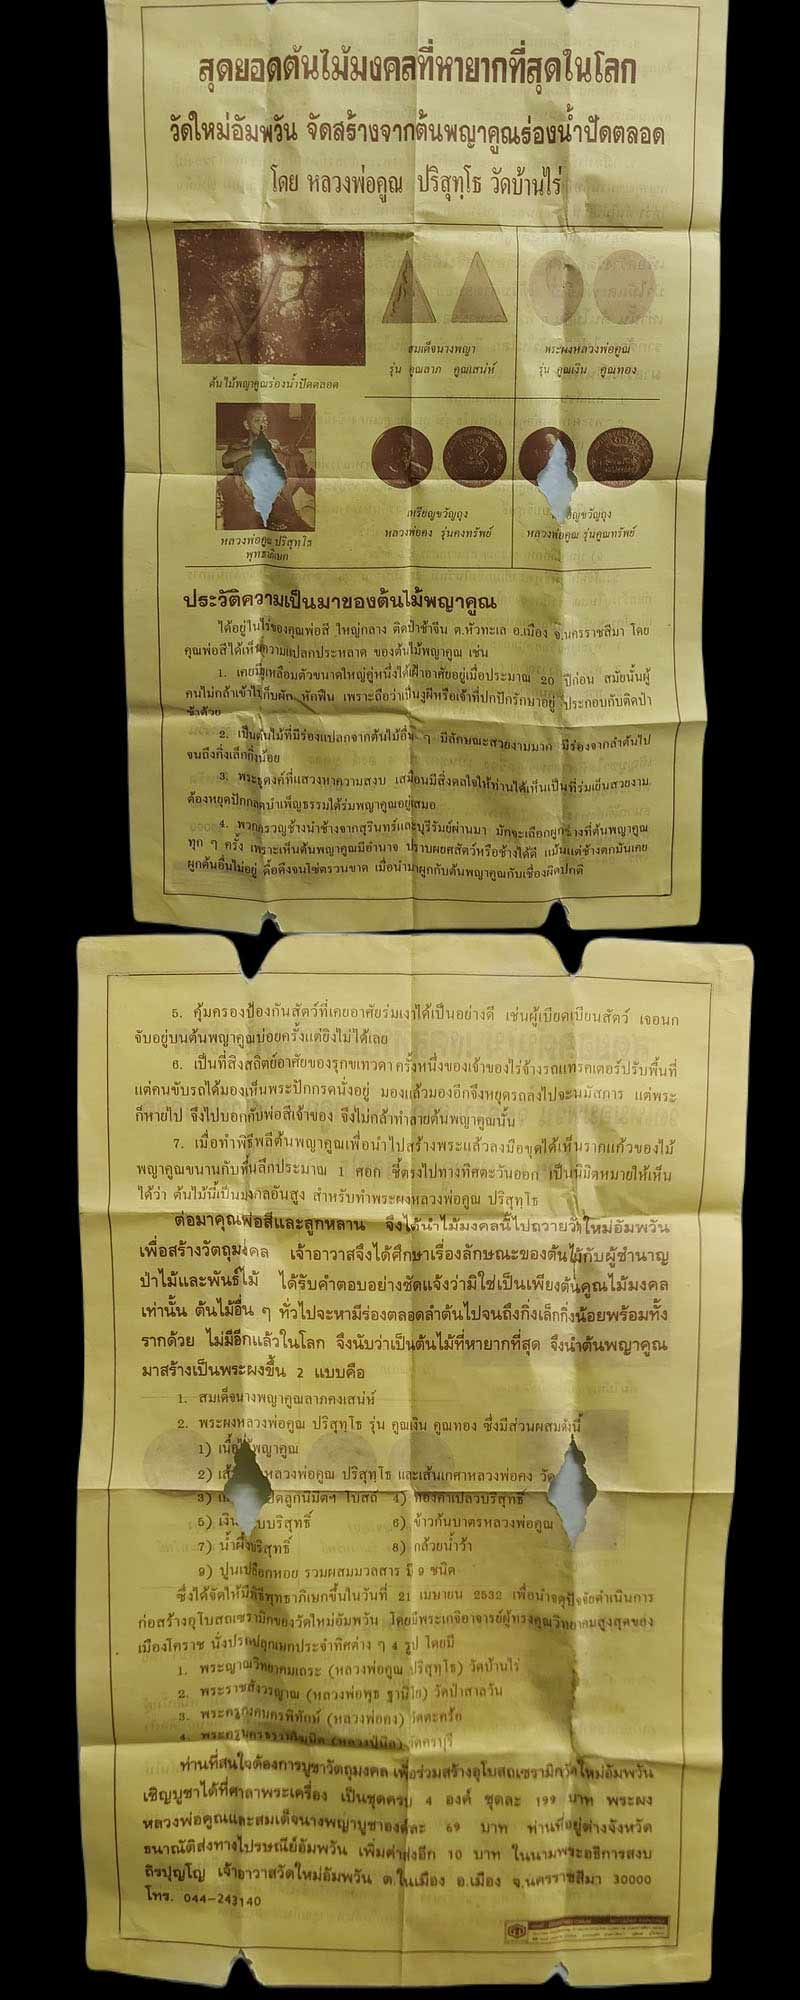 สุดยอดต้นไม้มงคลที่หายากที่สุดในโลก
วัดใหม่อัมพวัน จัดสร้างจากต้นพญาคูณร่องน้ำปัดตลอด
โดย หลวงพ่อคูณ ปริสุทฺโธ วัดบ้านไร่
ต้นไม้พญาคูณร่องน้ำปัดตลอด
สมเด็จนางพญา
รุ่น คูณลาภ คูณเสน่ห์
พระผงหลวงพ่อคูณ
รุ่น คูณเงิน คูณทอง
หลวงพ่อคูณ ปริสุทฺโธ
พุทธาภิเษก
เหรียญขวัญถุง
หลวงพ่อคง รุ่นคงทรัพย์
ขวัญถุง
หลวงพ่อคูณ รุ่นคูณทรัพย์
ประวัติความเป็นมาของต้นไม้พญาคูณ
ได้อยู่ในไร่ของคุณพ่อสี ใหญ่กลาง ติดป่าช้าจีน ต.หัวทะเล อ.เมือง จ.นครราชสีมา โดย
คุณพ่อสีได้เห็นความแปลกประหลาด ของต้นไม้พญาคูณ เช่น
1. เคยมีงูเหลือมตัวขนาดใหญ่คู่หนึ่งได้เฝ้าอาศัยอยู่เมื่อประมาณ 20 ปีก่อน สมัยนั้นผู้
คนไม่กล้าเข้าไปเก็บผัก หักฟืน เพราะถือว่าเป็นงูผีหรือเจ้าที่ปกปักรักษาอยู่ ประกอบกับติดป่า
ช้าด้วย
2. เป็นต้นไม้ที่มีร่องแปลกจากต้นไม้อื่น ๆ มีลักษณะสวยงามมาก มีร่องจากลำต้นไป
จนถึงกิ่งเล็กกิ่งน้อย
3. พระธุดงค์ที่แสวงหาความสงบ เสมือนมีสิ่งดลใจให้ท่านได้เห็นเป็นที่ร่มเย็นสวยงาม
ต้องหยุดปักกลดบำเพ็ญธรรมใต้ร่มพญาคูณอยู่เสมอ
4. พวกควาญช้างนำช้างจากสุรินทร์และบุรีรัมย์ผ่านมา มักจะเลือกผูกช้างที่ต้นพญาคูณ
ทุก ๆ ครั้ง เพราะเห็นต้นพญาคูณมีอำนาจ ปราบผยศสัตว์หรือช้างได้ดี แม้นแต่ช้างตกมันเคย
ผูกต้นอื่นไม่อยู่ ดื้อดึงจนโซ่ตรวนขาด เมื่อนำมาผูกกับต้นพญาคูณกับเชื่องผิดปกติ
5. คุ้มครองป้องกันสัตว์ที่เคยอาศัยร่มเงาได้เป็นอย่างดี เช่นผู้เบียดเบียนสัตว์ เจอนก
จับอยู่บนต้นพญาคูณบ่อยครั้งแต่ยิงไม่ได้เลย
6. เป็นที่สิงสถิตย์อาศัยของรุกขเทวดา ครั้งหนึ่งของเจ้าของไร่จ้างรถแทรคเตอร์ปรับพื้นที่
แต่คนขับรถได้มองเห็นพระปักกรดนั่งอยู่ มองแล้วมองอีกจึงหยุดรถลงไปจะนมัสการ แต่พระ
ก็หายไป จึงไปบอกกับพ่อสีเจ้าของ จึงไม่กล้าทำลายต้นพญาคูณนั้น
7. เมื่อทำพิธีพลีต้นพญาคูณเพื่อนำไปสร้างพระแล้วลงมือขุดได้เห็นรากแก้วของไม้
พญาคูณขนานกับพื้นลึกประมาณ 1 ศอก ชี้ตรงไปทางทิศตะวันออก เป็นนิมิตหมายให้เห็น
ได้ว่า ต้นไม้นี้เป็นมงคลอันสูง สำหรับทำพระผงหลวงพ่อคูณ ปริสุทฺโธ
ต่อมาคุณพ่อสีและลูกหลาน จึงได้นำไม้มงคลนี้ไปถวายวัดใหม่อัมพวัน
เพื่อสร้างวัตถุมงคล เจ้าอาวาสจึงได้ศึกษาเรื่องลักษณะของต้นไม้กับผู้ชำนาญ
ป่าไม้และพันธ์ไม้ ได้รับคำตอบอย่างชัดแจ้งว่ามิใช่เป็นเพียงต้นคูณไม้มงคล
เท่านั้น ต้นไม้อื่น ๆ ทั่วไปจะหามีร่องตลอดลำต้นไปจนถึงกิ่งเล็กกิ่งน้อยพร้อมทั้ง
รากด้วย ไม่มีอีกแล้วในโลก จึงนับว่าเป็นต้นไม้ที่หายากที่สุด จึงนำต้นพญาคูณ
มาสร้างเป็นพระผงขึ้น 2 แบบคือ
1. สมเด็จนางพญาคูณลาภคงเสน่ห์
2. พระผงหลวงพ่อคูณ ปริสุทฺโธ รุ่น คูณเงิน คูณทอง ซึ่งมีส่วนผสมดังนี้
1) เนื้อไม้พญาคูณ
2) หลวงพ่อคูณ ปริสุทฺโธ และเส้นเกศาหลวงพ่อคง วัด
3) ปิดลูกนิมิตฯ โบสถ์ 4) ทองคำเปลวบริสุทธิ์
5) เงิน บริสุทธิ์ 6) ข้าวก้นบาตรหลวงพ่อคูณ
7) น้ำผึ้งบริสุทธิ์ 8) กล้วยน้ำว้า
9) ปูนเปลือกหอย รวมผสมมวลสาร มี 9 ชนิด
ซึ่งได้จัดให้มีพิธีพุทธาภิเษกขึ้นในวันที่ 21 เมษายน 2532 เพื่อนำจตุปัจจัยดำเนินการ
ก่อสร้างอุโบสถเซรามิกของวัดใหม่อัมพวัน โดยมีพระเกจิอาจารย์ผู้ทรงคุณวิทยาคมสูงสุดของ
เมืองโคราช นั่งปรกปลุกเษกประจำทิศต่าง ๆ 4 รูป โดยมี
1. พระญาณวิทยาคมเถระ (หลวงพ่อคูณ ปริสุทฺโธ) วัดบ้านไร่
2. พระราชสังวรญาณ (หลวงพ่อพุธ ฐานิโย) วัดป่าสาลวัน
3. พระครูคงคนครพิทักษ์ (หลวงพ่อคง) วัดตะคร้อ
4. (หลวงปู่นิล) วัดครบุรี
ท่านที่สนใจต้องการบูชาวัตถุมงคล เพื่อร่วมสร้างอุโบสถเซรามิกวัดใหม่อัมพวัน
เชิญบูชาได้ที่ศาลาพระเครื่อง เป็นชุดครบ 4 องค์ ชุดละ 199 บาท พระผง
หลวงพ่อคูณและสมเด็จนางพญาบูชาองค์ละ 69 บาท ท่านที่อยู่ต่างจังหวัด
ธนาณัติส่งทางไปรษณีย์อัมพวัน เพิ่มค่าส่งอีก 10 บาท ในนามพระอธิการสงบ
ถิรปุญฺโญ เจ้าอาวาสวัดใหม่อัมพวัน ต.ในเมือง อ.เมือง จ.นครราชสีมา 30000
โทร. 044-243140